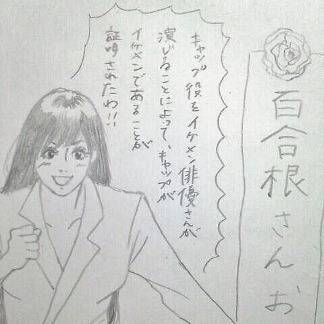 百合根さんお
キャップ役をイケメン俳優さんが
演じることによって、キャップが
イケメンであることが
証明されたわ!!